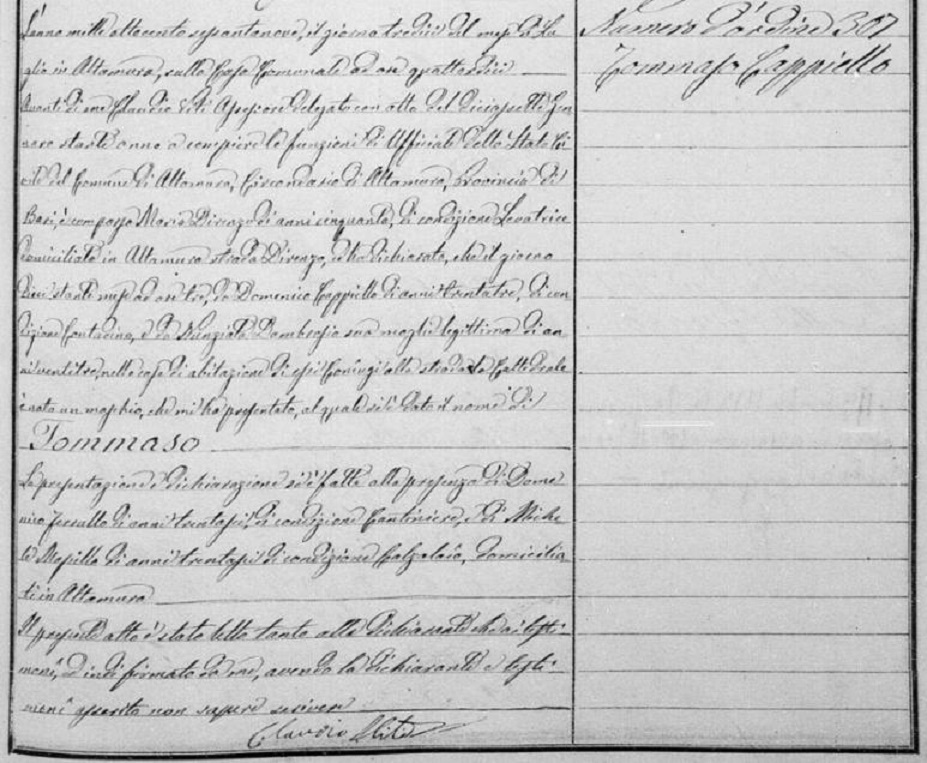 L'anno mille ottocento settantanove, il giorno tredici del mese di Lu
glio in Altamura, nella Casa Comunale ad ore quattordici
Avanti di me Claudio Assessore delegato con atto del diciassette Gen
naro stante anno a compiere le funzioni di Uffiziale dello Stato Ci
vile del Comune di Altamura, Circondario di Altamura, Provincia di
Bari, è comparsa Maria Direnzo di anni cinquanta, di condizione Levatrice
domiciliata in Altamura strada Direnzo, ed ha dichiarato, che il giorno
dieci stante mese ad ore tre, da Domenico Cappiello di anni trentatre, di con
dizione Contadino, e da Nunziata Dambrosio sua moglie legittima di an
ni ventitre, nella casa di abitazione di essi Coniugi alla strada la Cattedrale
è nato un maschio, che mi ha presentato, al quale si è dato il nome di
Tommaso
La presentazione e dichiarazione si è fatta alla presenza di Dome
nico di anni trentasei, di condizione Cantiniere, e di Miche
le di anni trentasei di condizione Calzolaio, domicilia
ti in Altamura
Il presente atto è stato letto tanto alla dichiarante che ai testi-
moni, ed indi firmato da me, avendo la dichiarante e testi-
moni asserito non sapere scrivere
Claudio
Numero d'ordine 367
Tommaso Cappiello